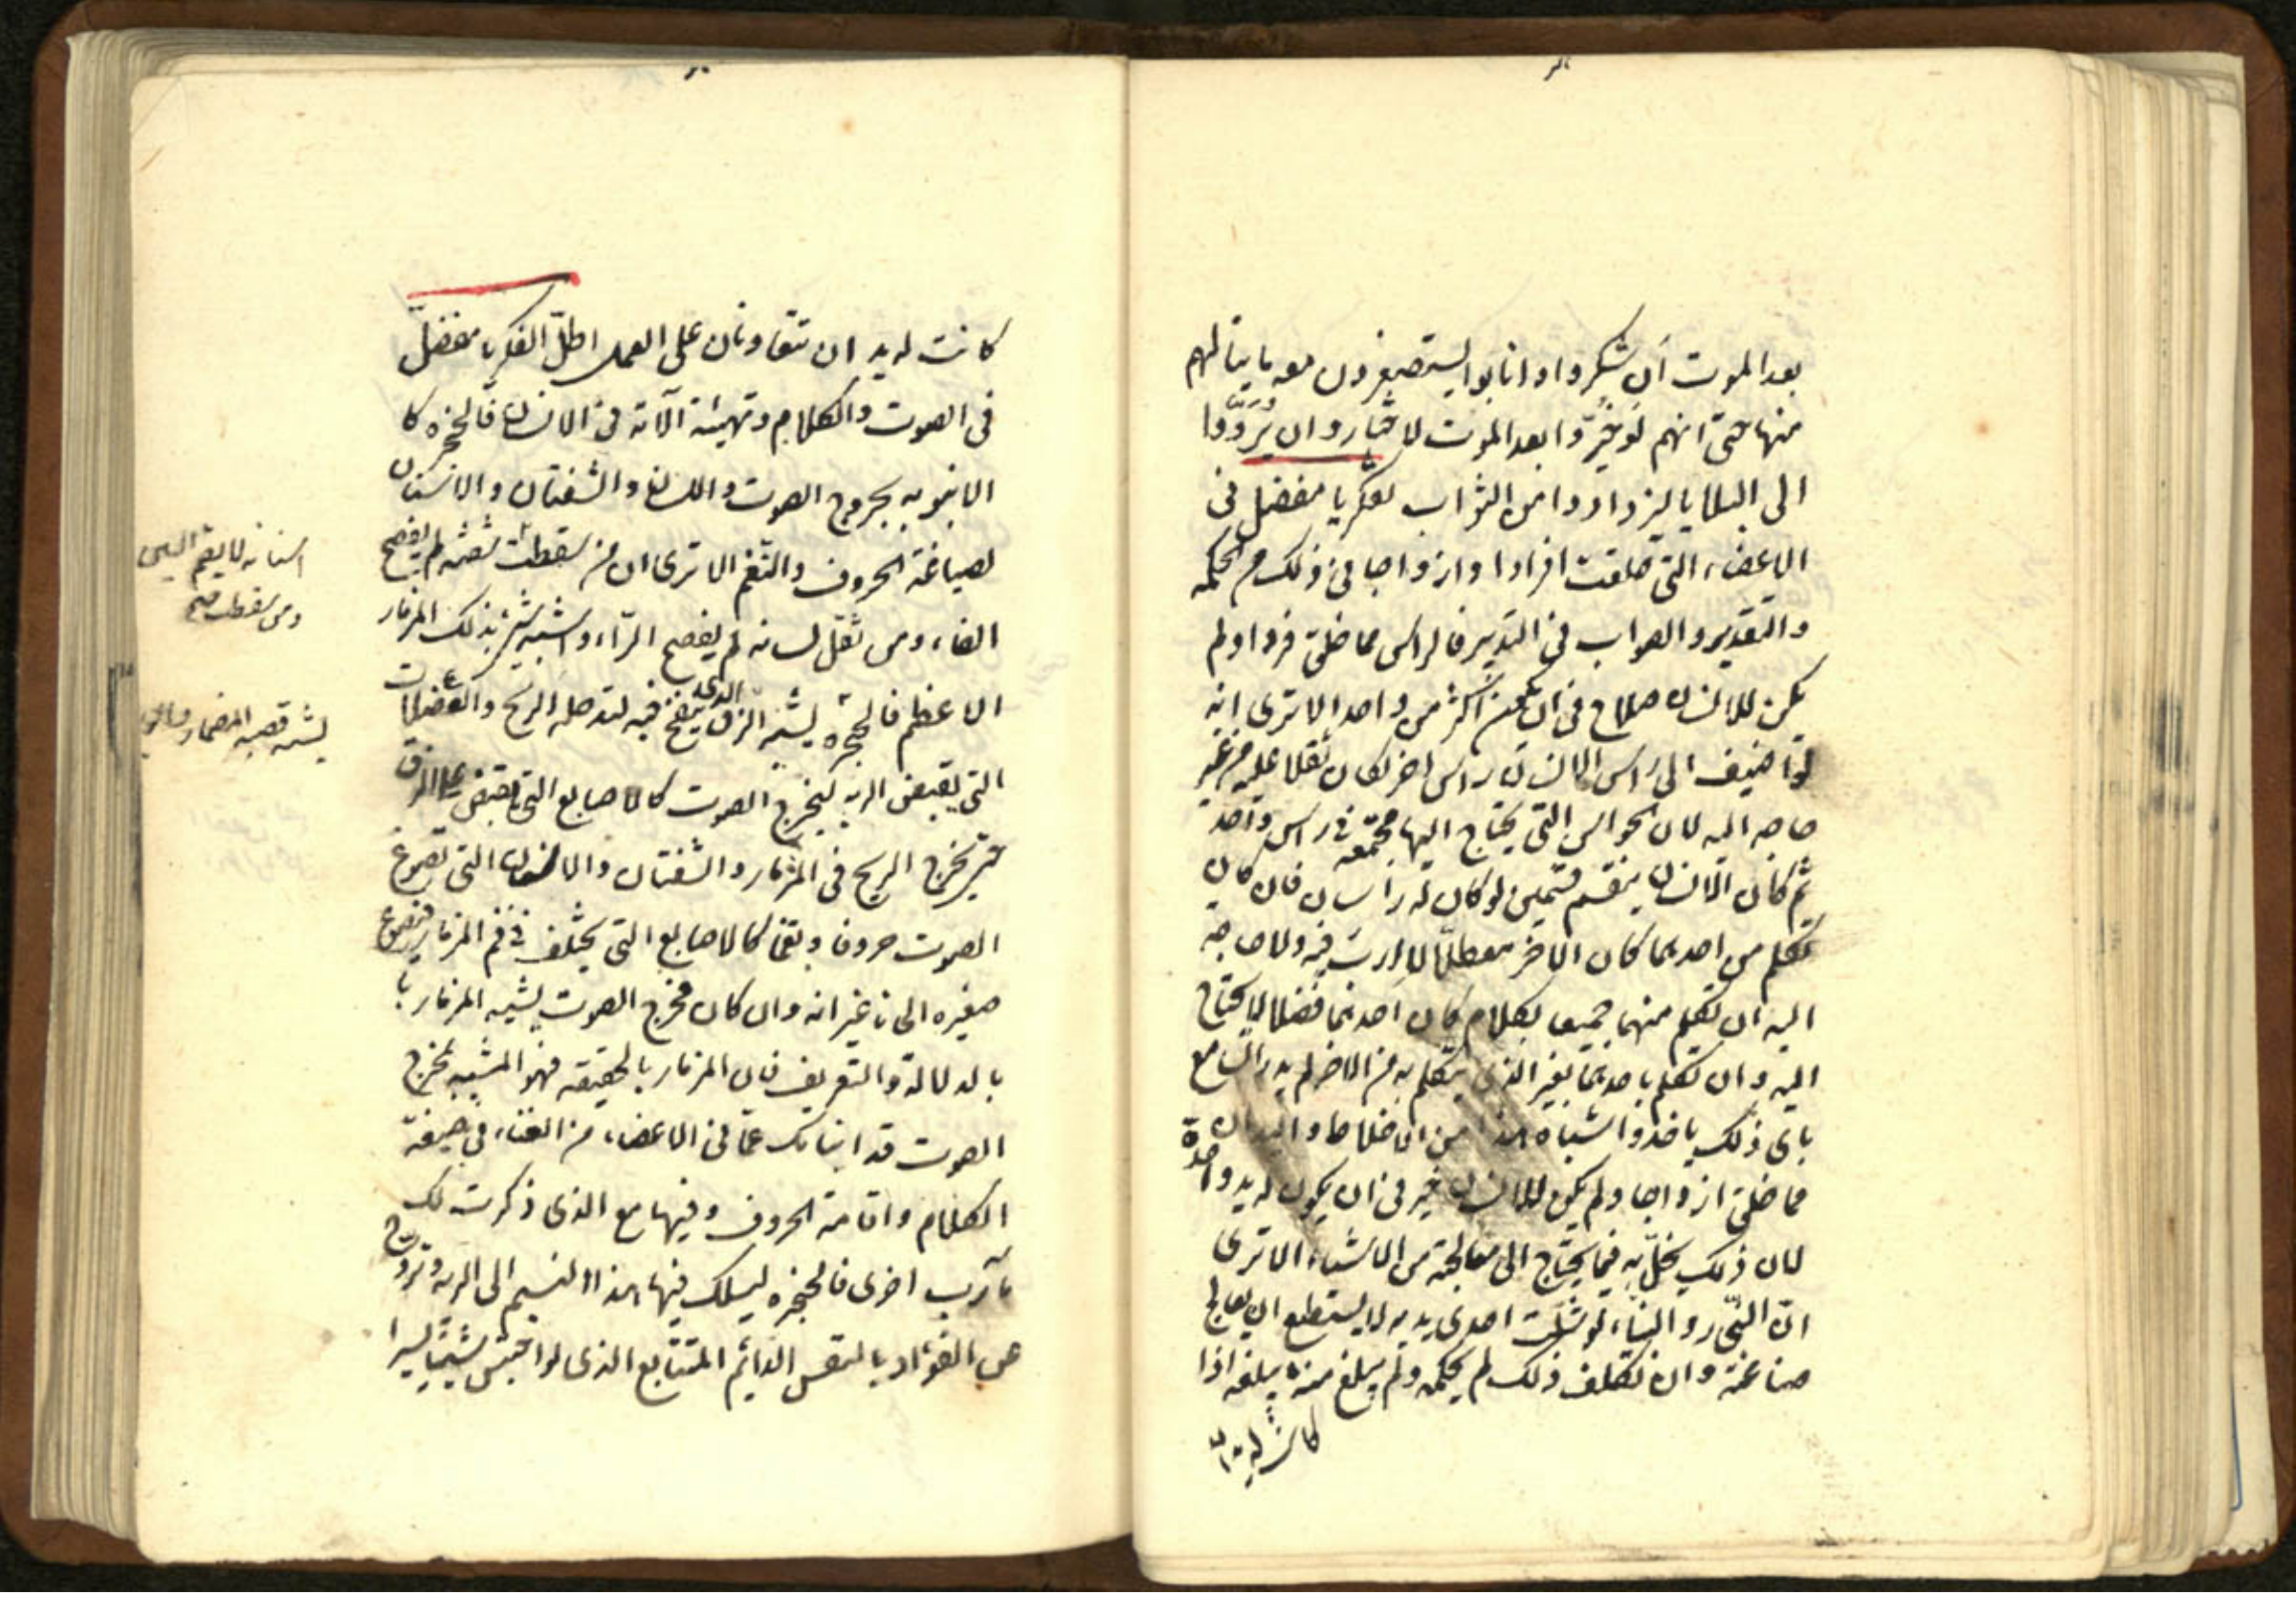 بعد الموت ان شكروا وانابوا يستصغرون معه ما ينالهم
منها حتى انهم لو خيروا بعد الموت لاختاروا ان يردوا
الى البلايا ليزدادوا من الثواب فكر يا مفضل فى
الاعضاء التى خلقت افرادا وازواجا فى ذلك من الحكمه
والتقدير والصواب فى التدبير فالراس مما خلق فردا ولم
يكن للانسان صلاح فى ان يكون اكثر من واحد الا ترى انه
لو اضيف الى راس الانسان راس اخر لكان ثقلا عليه من غير
حاجه اليه لان الحواس التى يحتاج اليها مجتمعه فى راس واحد
ثم كان الانسان ينقسم قسمين لو كان له راسان فان كان
تكلم من احدهما كان الاخر معطلا لا ارب فيه ولا حاجه
اليه ان تكلم منهما جميعا بكلام كان احدهما فضلا لا يحتاج
اليه وان تكلم باحدهما بغير الذى يتكلم به من الاخر لم يدر السامع
باى ذلك ياخذ واشباه هذا من الاخلاط واليدان
مما خلق ازواجا ولم يكن للانسان خير فى ان يكون له يد واحدة
لان ذلك يخل به فيما يحتاج الى معالجته من الاشياء الا ترى
ان النجار والبناء لو شلت احدى يديه لا يستطيع ان يعالج
صناعته وان تكلف ذلك لم يحكمه ولم يبلغ منه ما يبلغه اذا
كانت له يدا
كانت له يد ان تتعاونان على العمل اطل الفكر يا مفضل
فى الصوت والكلام وتهيئة آلاته فى الانسان فالحنجره كا
الانبوبه لخروج الصوت واللسان والشفتان والاسنان
لصياغة الحروف والنغم الا ترى ان من سقطت شفته لم يفصح
الفاء ومن ثقل لسانه لم يفصح الراء واشبه شئ بذلك المزمار
الاعظم فالحنجره يشبه الزق الذى ينفخ فيه لتدخله الريح والعضلات
التى تقبض الريه ليخرج الصوت كالاصابع التى تقبض على الزق
حتى تخرج الريح فى المزمار والشفتان والاسنان التى تصوغ
الصوت حروفا ونغما كالاصابع التى يختلف فى فم المزمار فتصوغ
صفيره الحانا غير انه وان كان مخرج الصوت يشبه المزمار با
بالدلالة والتعريف فان المزمار بالحقيقه فهو المشبه بمخرج
الصوت قد انباتك عما فى الاعضاء من الغناء فى صنعة
الكلام واقامة الحروف وفيها مع الذى ذكرت لك
مآرب اخرى فالحنجره ليسلك فيها هذا النسيم الى الريه وتروح
عن الفؤاد بالنفس الدائم المتتابع الذى لو احتبس شيئا يسيرا
اسنانه لم يقم السين
ومن سقطت صح
يشبه قصبه المزمار